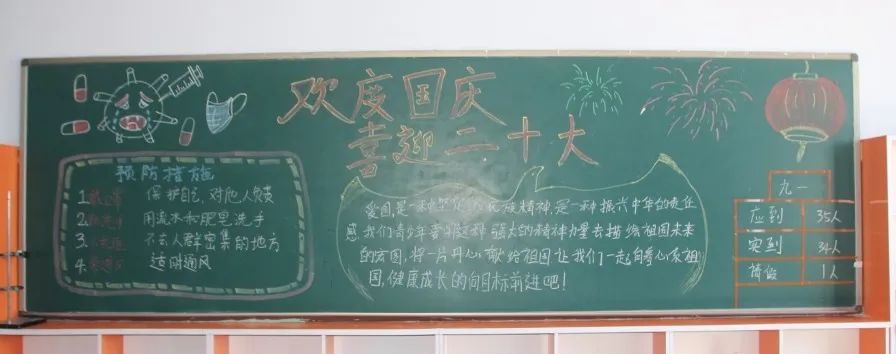 欢度国庆
喜迎二十大
预防措施
1. 保护自己,对他人负责
2. 用流水和肥皂洗手
3. 不去人群密集的地方
4. 透明通风
爱国,是一种坚 民族精神,是一种振兴中华的责任
感,我们青少年要 这种强大的精神力量去描绘祖国未来
的宏图,将一片丹心献给祖国让我们一起自尊心系祖
国,健康成长的向目标前进吧!
九一
应到 35人
实到 34人
请假 1人